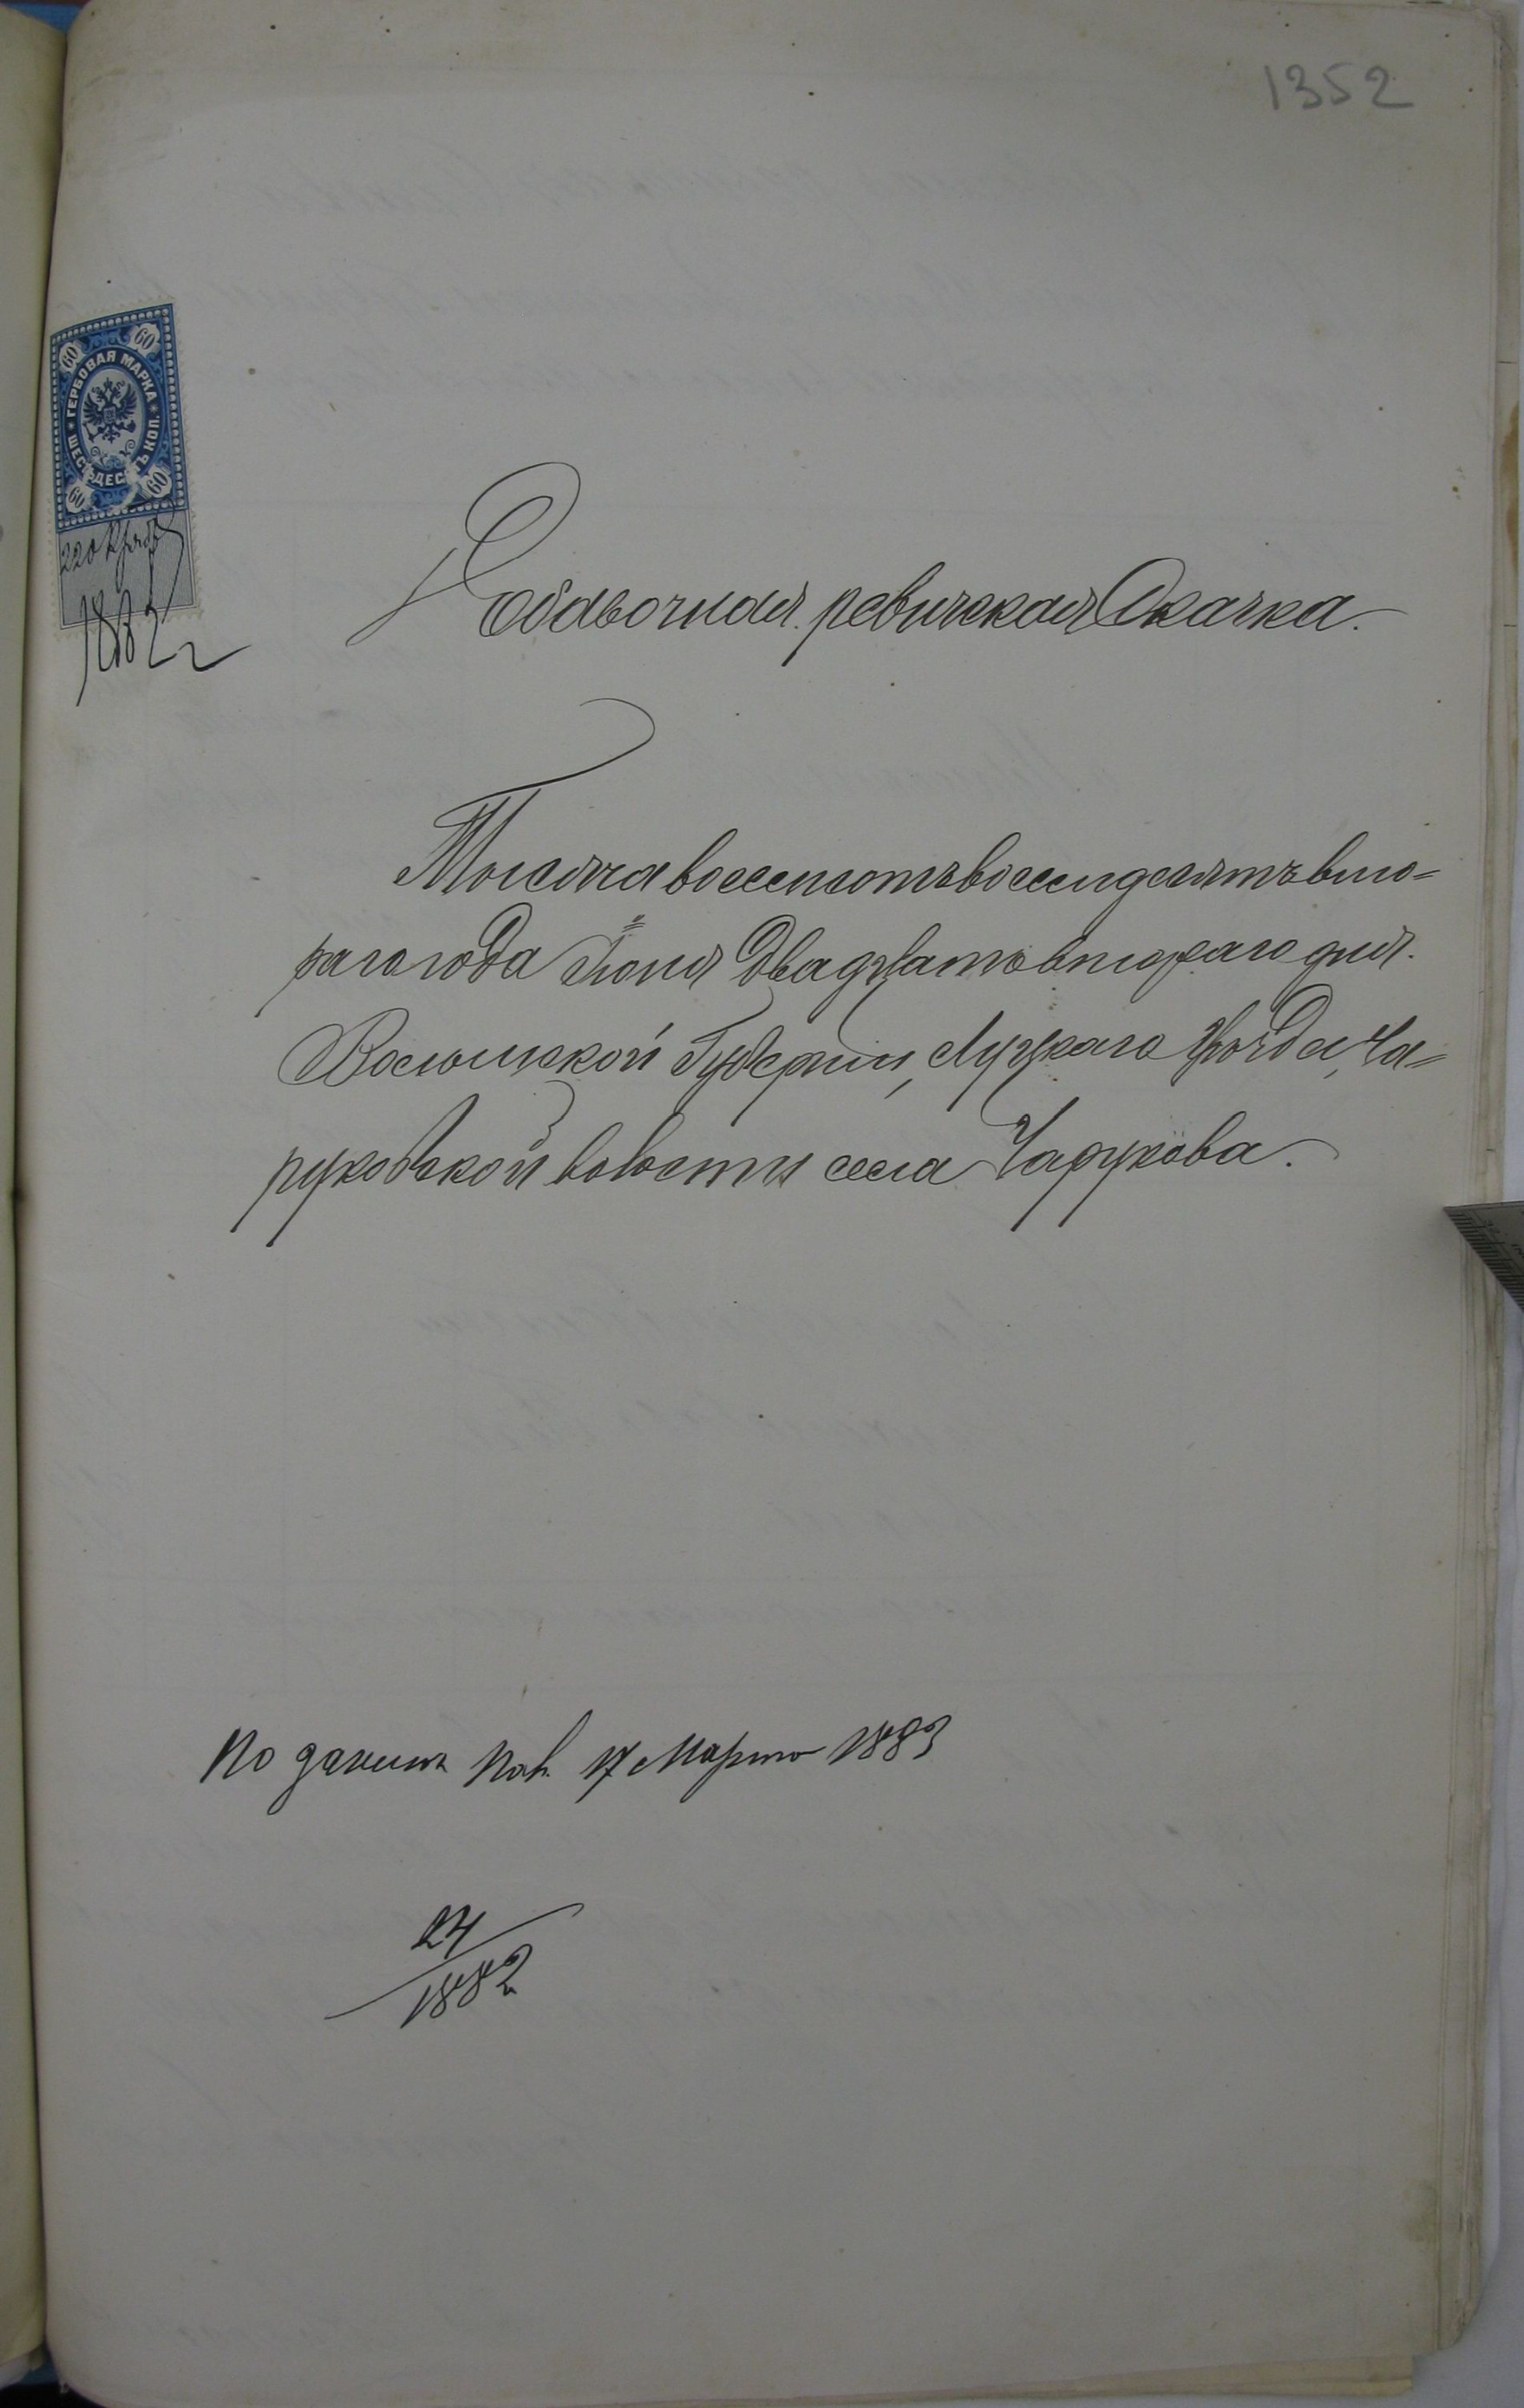 1352
60 60
ГЕРБОВАЯ МАРКА
ШЕСТЬДЕСЯТЪ КОП.
60 60
1882 г
Добавочная ревизская Сказка.
Тысяча восемьсотъ восемьдесятъ вто=
раго года Іюня двадцать втораго дня.
Волынской Губерніи, Луцкаго уѣзда, Ча=
руковской волости села Чарукова.
17 Марта 1883
24
1882